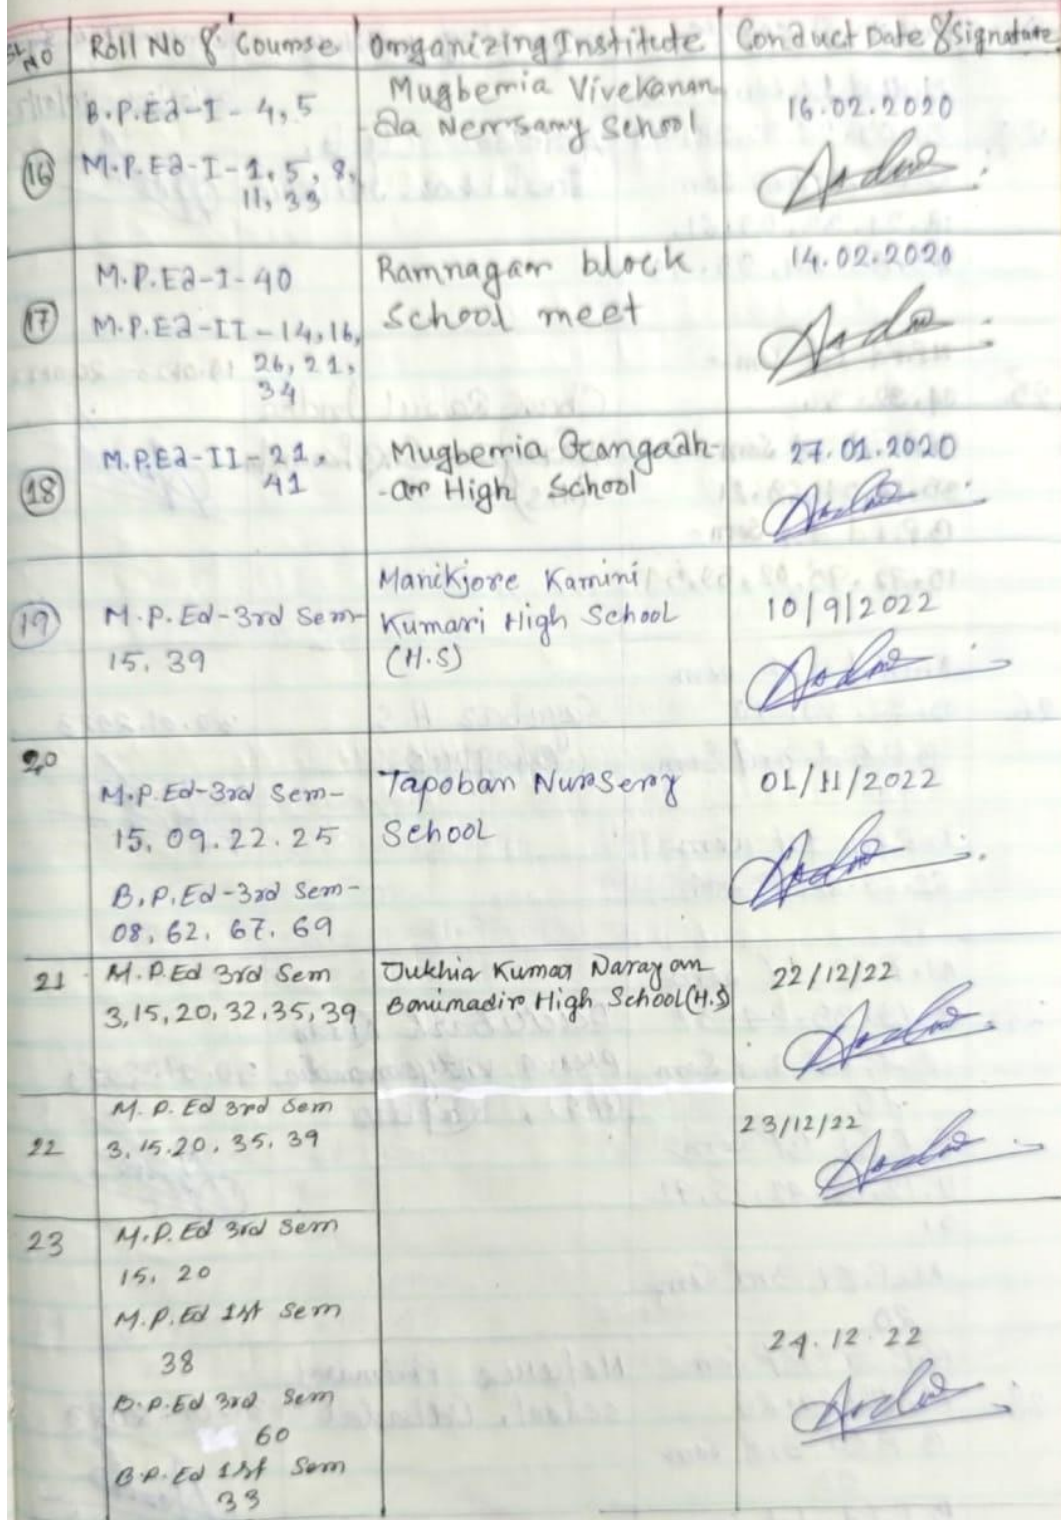 Sl. No Roll No & Course Organizing Institute Conduct Date & Signature
16 B.P.Ed-I - 4, 5
M.P.Ed-I - 1, 5, 8,
11, 33
Mugberia Vivekanan-
da Nersary School
16.02.2020
17 M.P.Ed-I-40
M.P.Ed-II - 14, 16,
26, 21,
34
Ramnagar block
School meet
14.02.2020
18 M.P.Ed-II - 21,
41
Mugberia Gangadh-
-ar High School
27.01.2020
19 M.P.Ed-3rd Sem-
15, 39
Manikjore Kamini
Kumari High School
(H.S)
10/9/2022
20 M.P.Ed-3rd Sem-
15, 09. 22. 25
B.P.Ed-3rd Sem-
08, 62, 67, 69
Tapoban Nursery
School
01/11/2022
21 M.P.Ed 3rd Sem
3, 15, 20, 32, 35, 39
Dukhia Kumar Narayan
Banimadir High School (H.S)
22/12/22
22 M.P.Ed 3rd Sem
3, 15, 20, 35, 39
23/12/22
23 M.P.Ed 3rd Sem
15, 20
M.P.Ed 1st Sem
38
B.P.Ed 3rd Sem
60
B.P.Ed 1st Sem
33
24.12.22